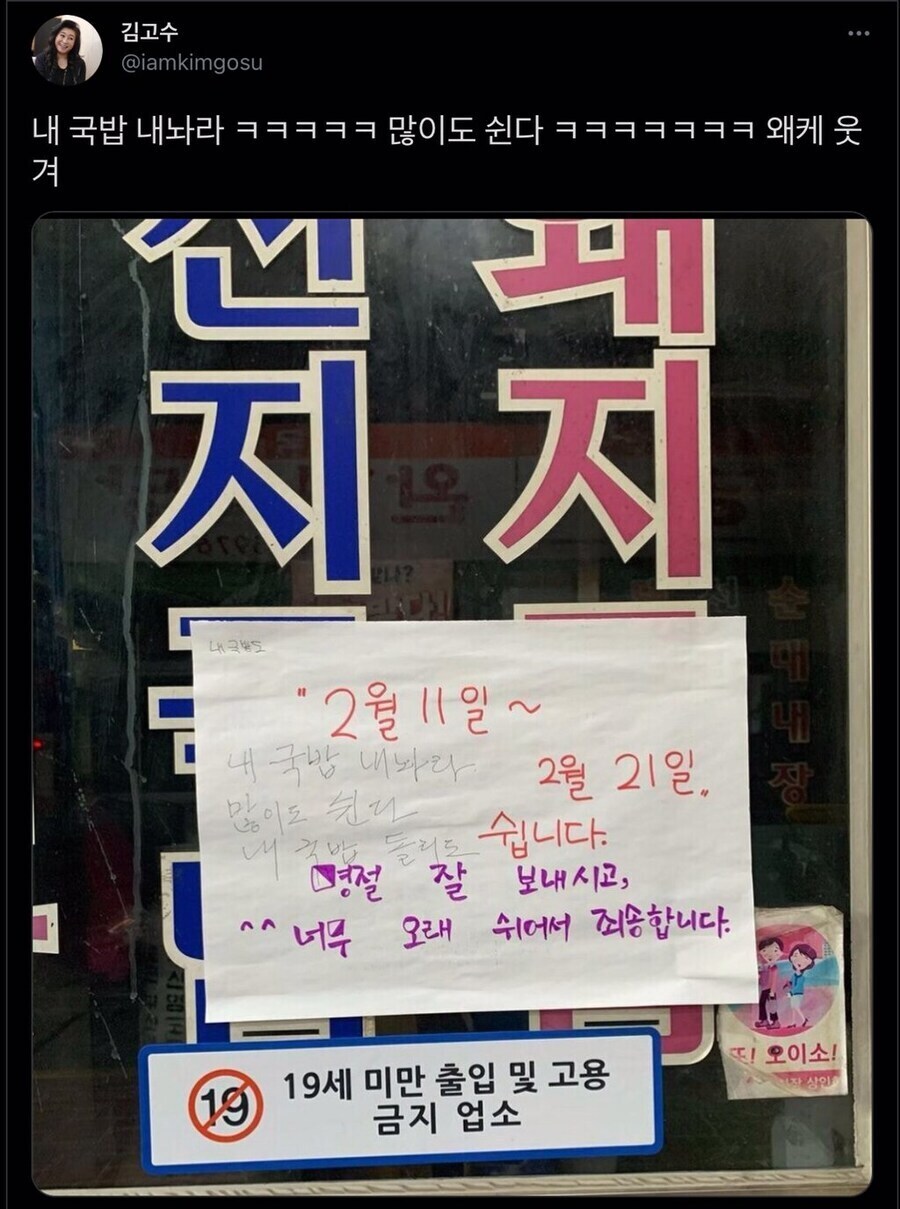 김고수
@iamkimgosu
내 국밥 내놔라 ㅋㅋㅋㅋㅋ 많이도 쉰다 ㅋㅋㅋㅋㅋㅋㅋ 왜케 웃
겨
선지
돼지
내 국밥도
"2월 11일 ~
내 국밥 내놔라
2월 21일"
많이도 쉰다
쉽니다.
내 국밥 돌리도
명절 잘 보내시고,
^^ 너무 오래 쉬어서 죄송합니다.
순대내장
또! 오이소!
19
19세 미만 출입 및 고용
금지 업소